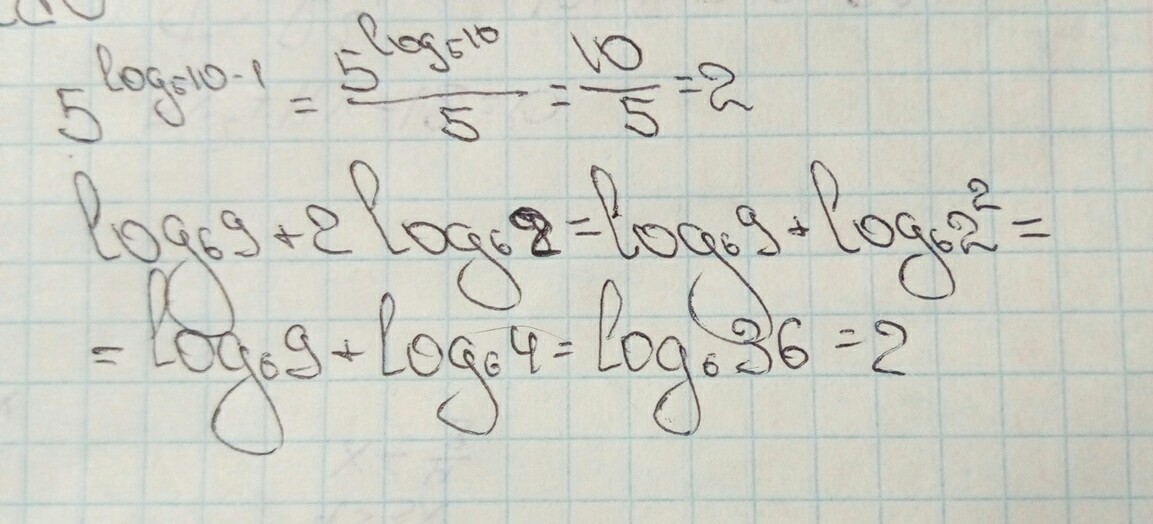 5^{log₅10-1} = \frac{5^{log₅10}}{5} = \frac{10}{5} = 2
log₆9 + 2 log₆2 = log₆9 + log₆2² =
= log₆9 + log₆4 = log₆36 = 2